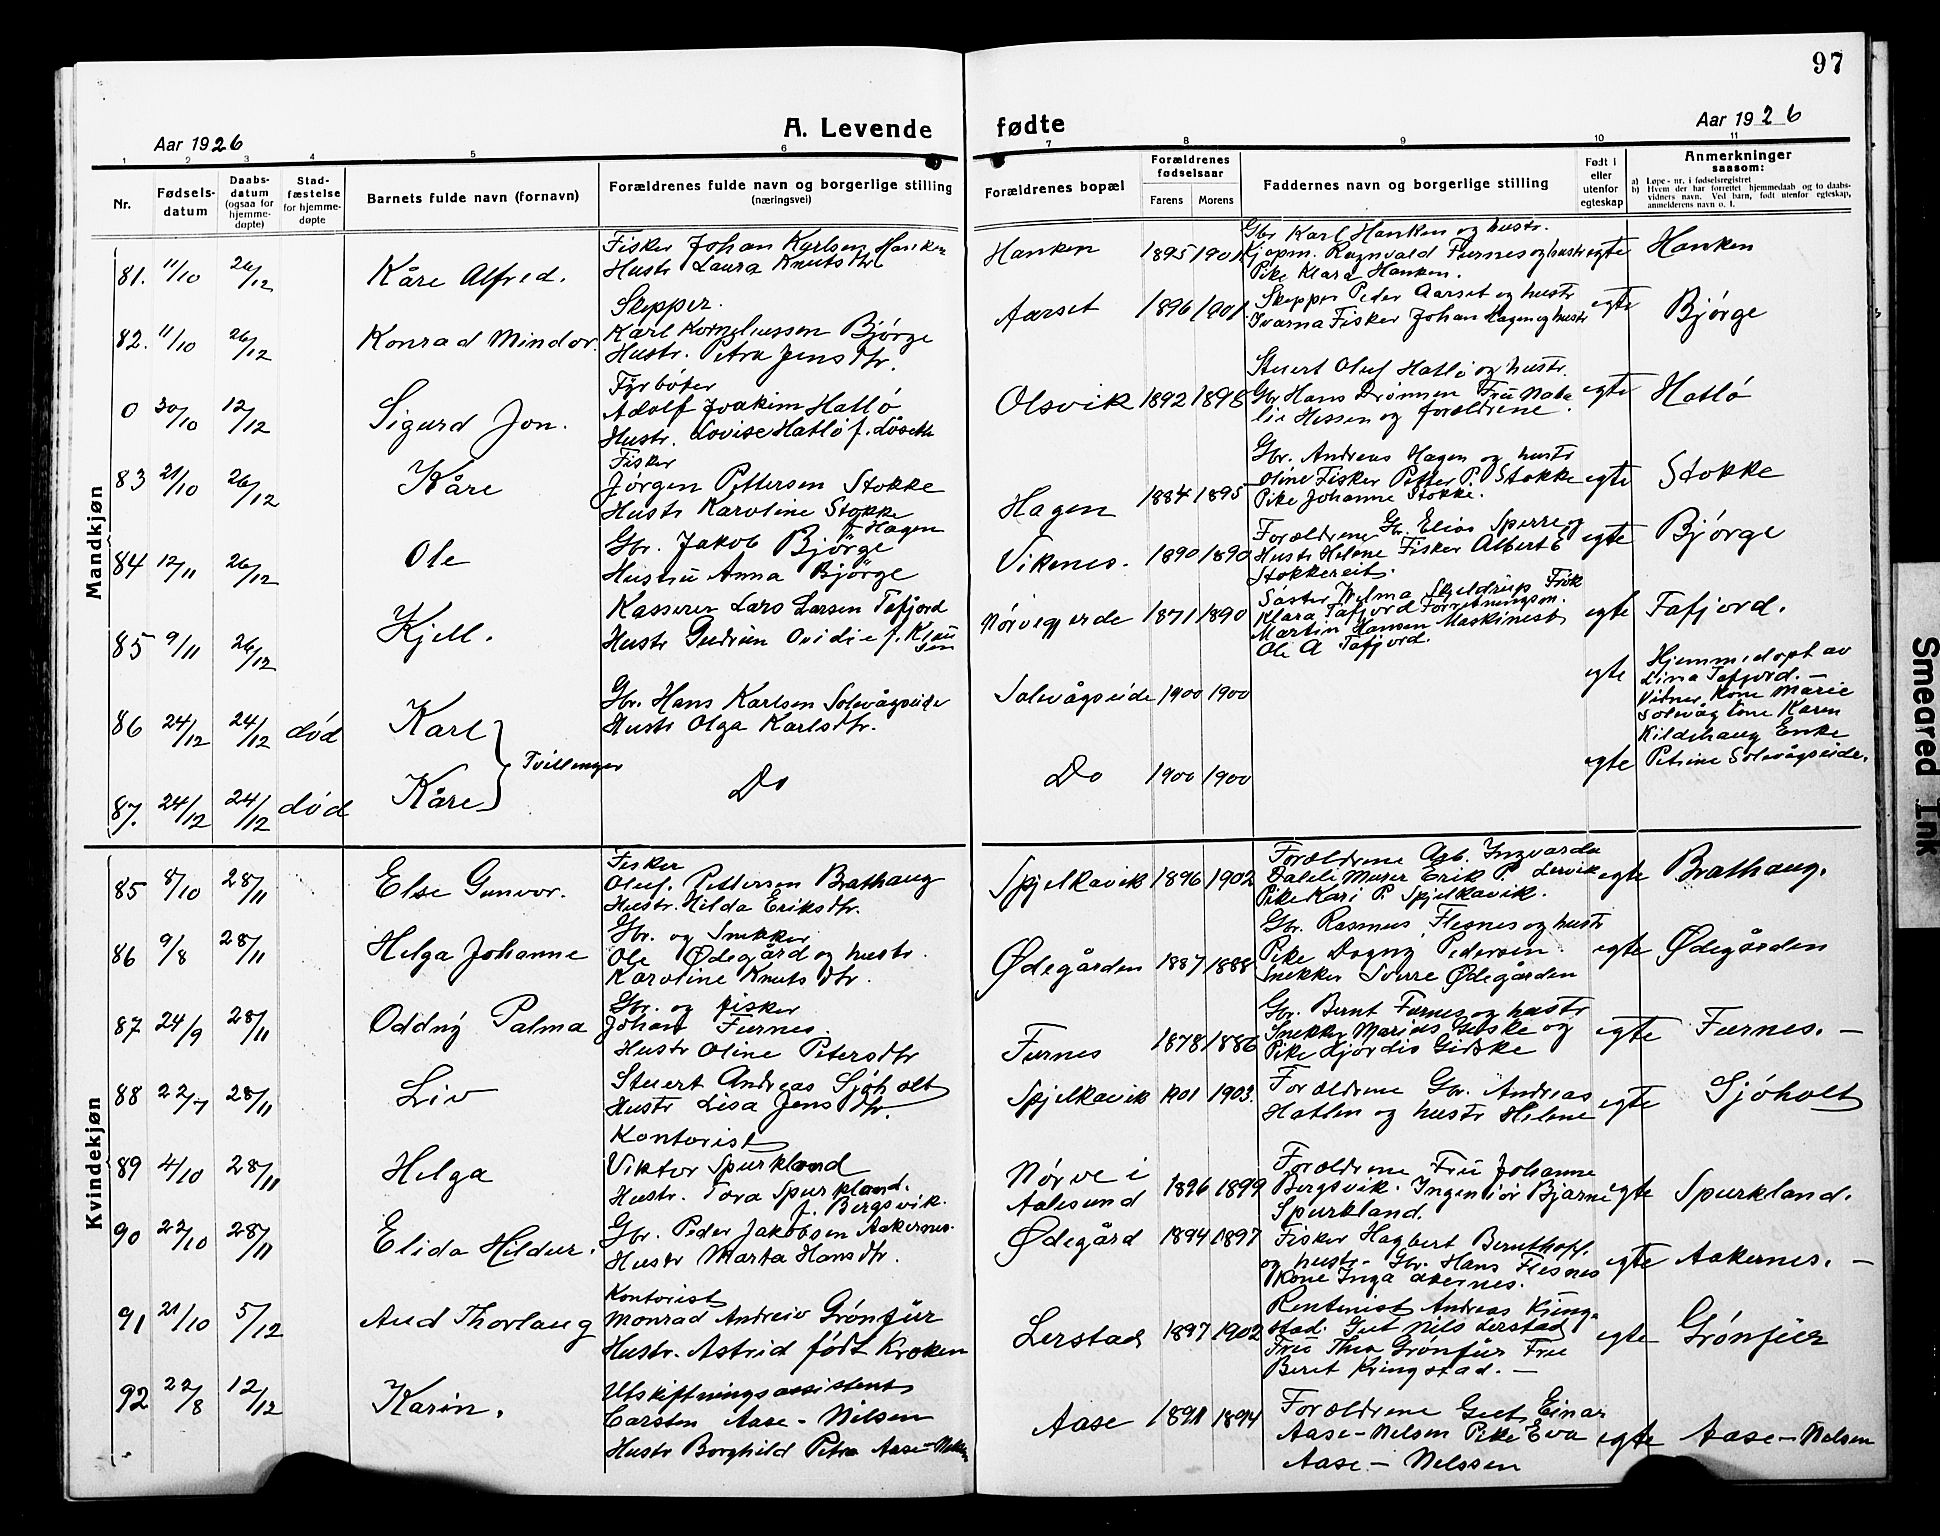 97
Aar 1926
A. Levende fødte
Aar 1926
1 2 3 4 5 6 7 8 9 10 11
Nr.
Fødsels-
datum
Daabs-
datum
(ogsaa for
hjemme-
døpte)
Stad-
fæstelse
for hjemme-
døpte
Barnets fulde navn (fornavn)
Forældrenes fulde navn og borgerlige stilling
(næringsvei)
Forældrenes bopæl
Forældrenes
fødselsaar
Farens Morens
Faddernes navn og borgerlige stilling
Født i
eller
utenfor
egteskap
Anmerkninger
saasom:
a) Løpe-nr. i fødselsregistret
b) Hvem der har forrettet hjemmedaab og to daabs-
vidners navn. Ved barn, født utenfor egteskap,
anmelderens navn o. l.
Mandkjøn
81. 11/10 26/12 Kåre Alfred.
Fisker Johan Karlsen Hanken
Hustr Laura Knutsdtr
Hanken 1895 1901
Gbr Karl Hanken og hustr.
Kjøpm. Ragnvald Furnes og hustr
Pike Klara Hanken.
egte Hanken
82. 11/10 26/12 Konrad Mindor.
Skipper.
Karl Korneliussen Bjørge
Hustr. Petra Jensdtr.
Aarset 1896 1901
Skipper Peder Aarset og hustr
Ivarna Fisker Johan Hagen og hustr
egte Bjørge
0 30/10 12/12 Sigurd Jon.
Fyrbøter
Adolf Joakim Hatlø
Hustr. Lovise Hatlø f. Løseth
Olsvik 1892 1898
Stuert Oluf Hatlø og hustr.
Gbr Hans Drønnen Fru Nata
lie Hessen og forældrene.
egte Hatlø
83 21/10 26/12 Kåre
Fisker
Jørgen Pettersen Stokke
Hustr Karoline Stokke
f. Hagen
Hagen 1884 1895
Gbr. Andreas Hagen og hustr
Oline Fisker Petter P. Stokke
Pike Johanne Stokke.
egte Stokke
84 12/11 26/12 Ole
Gbr. Jakob Bjørge
Hustru Anna Bjørge
Vikenes. 1890 1890
Forældrene Gbr. Elias Sperre og
Hustr Helene Fisker Albert E
Stokkereit.
egte Bjørge
85 9/11 26/12 Kjell.
Kasserer Lars Larsen Tafjord
Hustr Gudrun Ovidie f. Klau
sen
Nørvegjerde 1871 1890
Søster Helma Skjeldrup Frøk
Klara Tafjord Forretningsm.
Martin Hansen Maskinest
Ole A Tafjord.
egte Tafjord.
86 24/12 24/12 død Karl
Gbr. Hans Karlsen Solevågseide
Hustr Olga Karlsdtr.
Solevågseide 1900 1900
egte
Hjemmedøpt av
Lina Tafjord. -
Vidner Kone Marie
Solevåg Kone Karen
Kildehaug Enke
Petrine Solevågseide.
Tvillinger
87. 24/12 24/12 død Kåre
Do
Do 1900 1900
egte
Kvindekjøn
85 8/10 28/11 Else Gunvor.
Fisker
Oluf. Pettersen Brathaug
Hustr. Hilda Eriksdtr.
Spjelkavik 1896 1902
Forældrene Arb. Ingvarda
Daleli Murer Erik P. Lervik
Pike Kari P. Spjelkavik.
egte Brathaug.
86 9/8 28/11 Helga Johanne
Gbr. og Snekker
Ole Ødegård og hustr.
Karoline Knutsdtr.
Ødegården 1887 1888
Gbr. Rasmus Flesnes og hustr
Pike Dagny Pedersen
Snekker Sverre Ødegården
egte Ødegården
87 24/9 28/11 Oddny Palma
Gbr. og fisker
Johan Furnes.
Hustr Oline Petersdtr
Furnes 1878 1886
Gbr. Bernt Furnes og hustr
Snekker Marius Giske og
Pike Hjørdis Giske
egte Furnes. -
88 22/7 28/11 Liv
Stuert Andreas Sjøholt
Hustr Lisa Jensdtr.
Spjelkavik 1901 1903.
Forældrene Gbr. Andreas
Hatlen og hustr Helene
egte Sjøholt
89 4/10 28/11 Helga
Kontorist
Viktor Spurkland
Hustr. Tora Spurkland.
f. Bergsvik.
Nørve i
Aalesund 1896 1899
Forældrene Fru Johanne
Bergsvik. Ingeniør Bjarne
Spurkland.
egte Spurkland.
90 22/10 28/11 Elida Hildur.
Gbr. Peder Jakobsen Aakernes.
Hustr Marta Hansdtr.
Ødegård 1894 1897
Fisker Hagbert Bernthoff.
og hustr. Gbr. Hans Flesnes
Kone Inga Akernes.
egte Aakernes. -
91 21/10 5/12 Aud Thorlaug
Kontorist
Monrad Andreiv Grønfur
Hustr. Astrid født Kroken
Lerstad 1897 1902
Rentenist Andreas Kring-
stad. Gut Nils Lerstad
Fru Thea Grønfur Fru
Beret Kringstad. -
egte Grønfur
92 22/8 12/12 Karin.
Utskiftningsassistent
Carsten Aase-Nilsen
Hustr Borghild Petra Aase-Nilsen
Aase 1891 1894
Forældrene Gut Einar
Aase-Nilsen Pike Eva
Aase-Nilssen
egte Aase-Nilsen
Smeared Ink